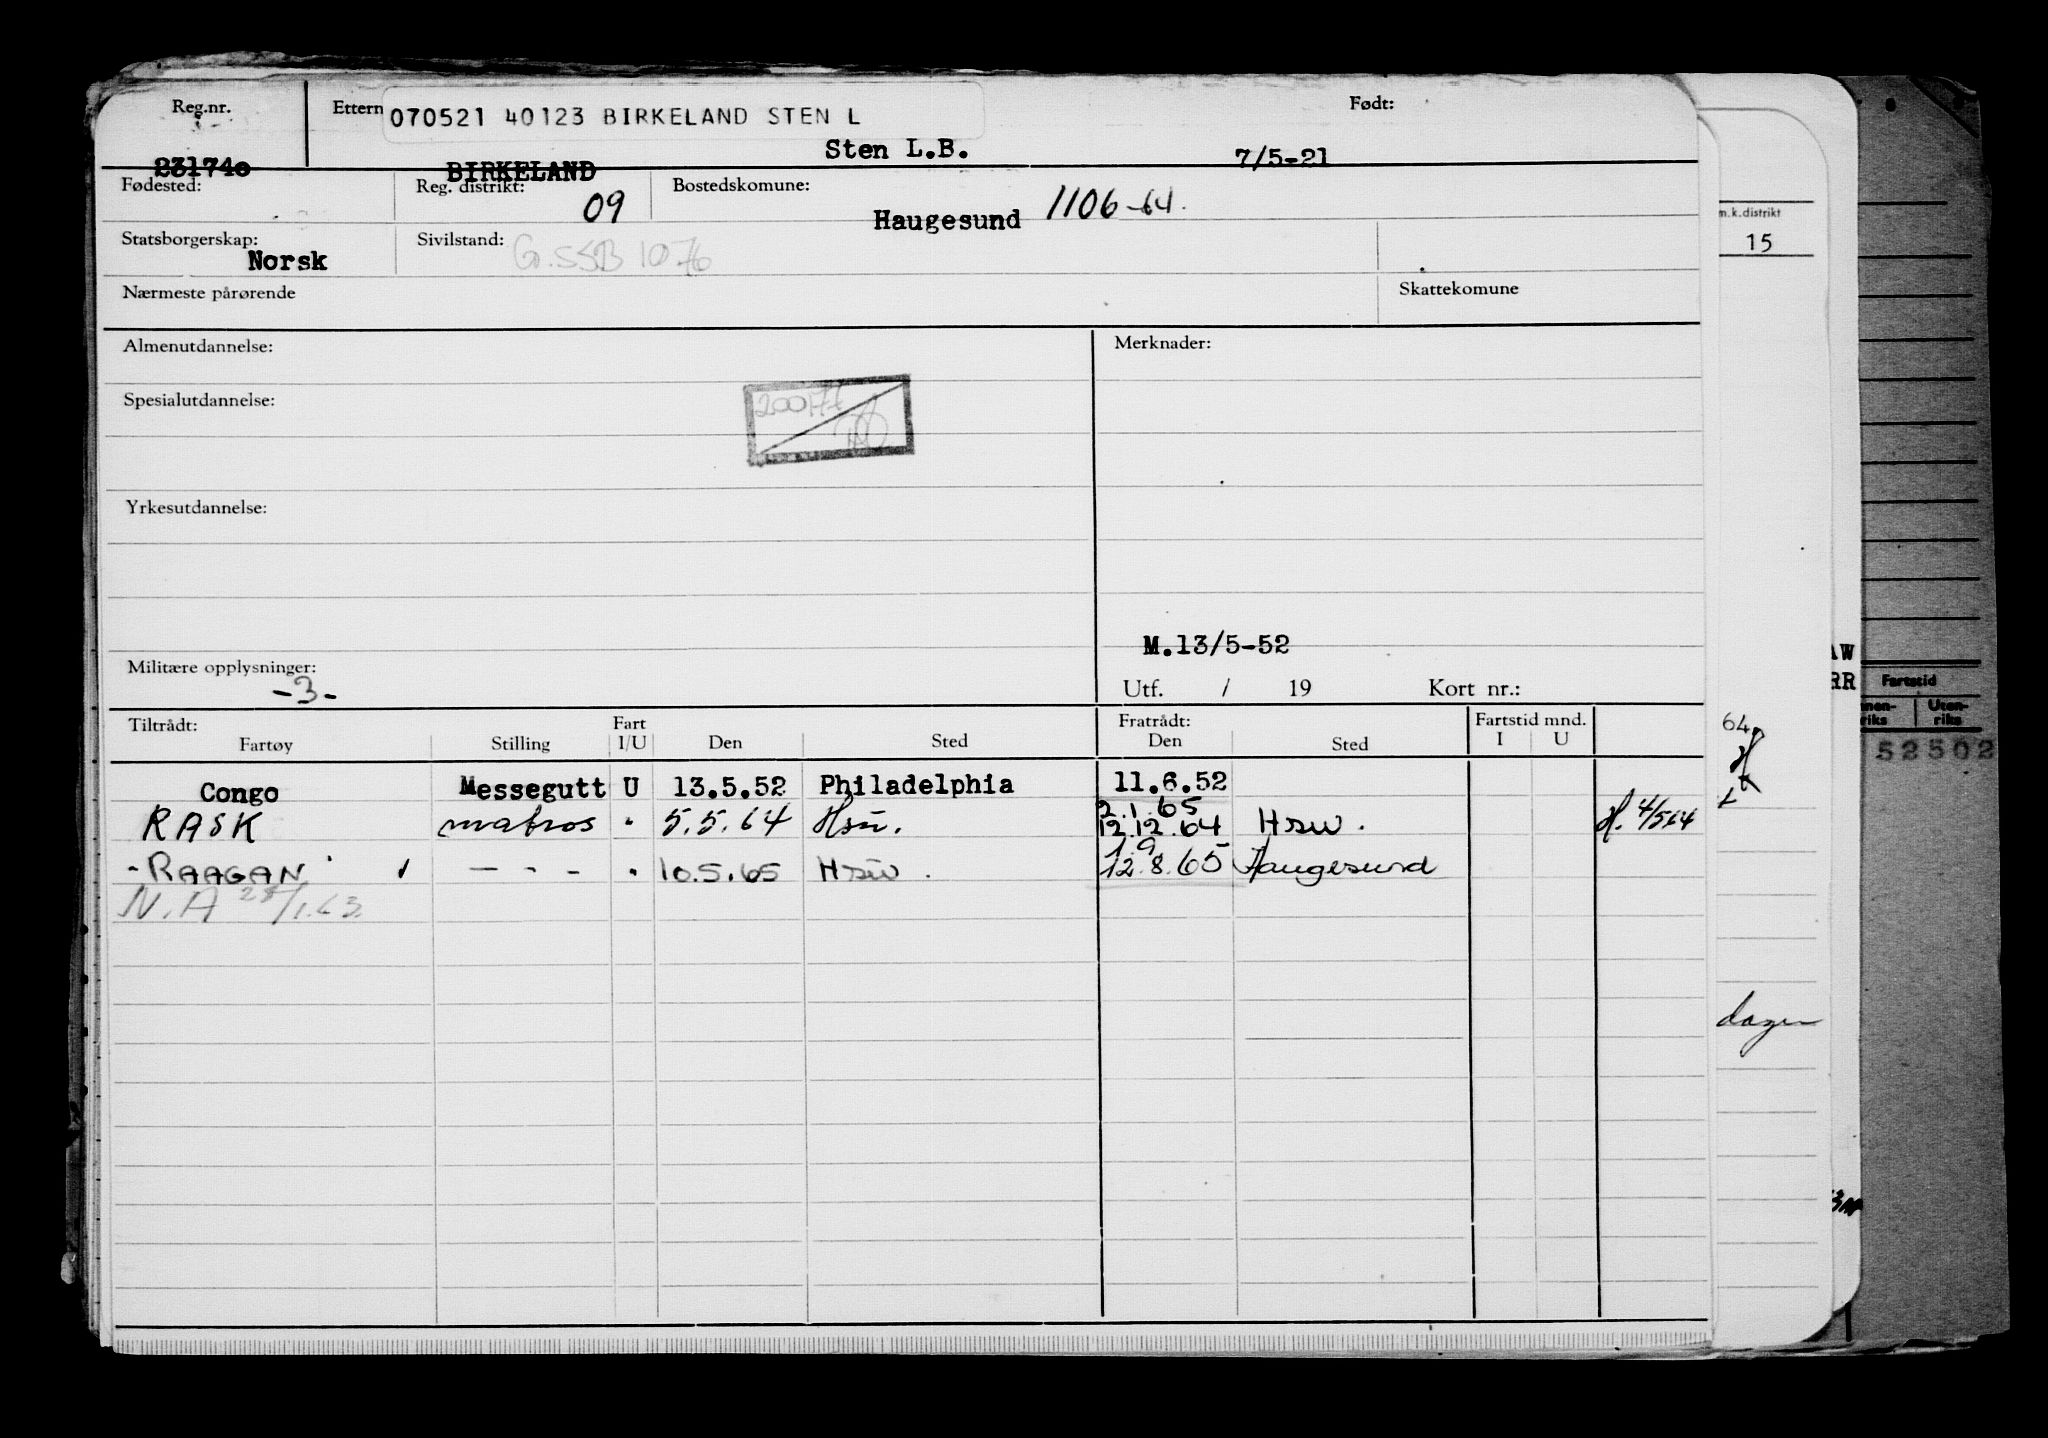 Reg.nr. Ettern 070521 40123 BIRKELAND STEN L Født:
231740 BIRKELAND Sten L.B. 7/5-21
Fødested: Reg. distrikt: 09 Bostedskomune: Haugesund 1106-64.
m.k.distrikt
15
Statsborgerskap: Norsk Sivilstand: G.SSB 1076
Nærmeste pårørende Skattekomune
Almenutdannelse: Merknader:
Spesialutdannelse:
200177
Yrkesutdannelse:
M.13/5-52
Militære opplysninger: -3-
Utf. / 19 Kort nr.:
AW
RR
Fartstid
nnen-riks Uten-riks
52502
Tiltrådt: Fart Fratrådt: Fartstid mnd.
Fartøy Stilling I/U Den Sted Den Sted I U
64
Congo Messegutt U 13.5.52 Philadelphia 11.6.52
2.1.65
RASK matros " 5.5.64 Hsu. 12.12.64 Hsu. H. 4/5.64
1.9
- RAAGAN - - - " 10.5.65 Hsu. 12.8.65 Haugesund
N.A 28/1.63.
dager